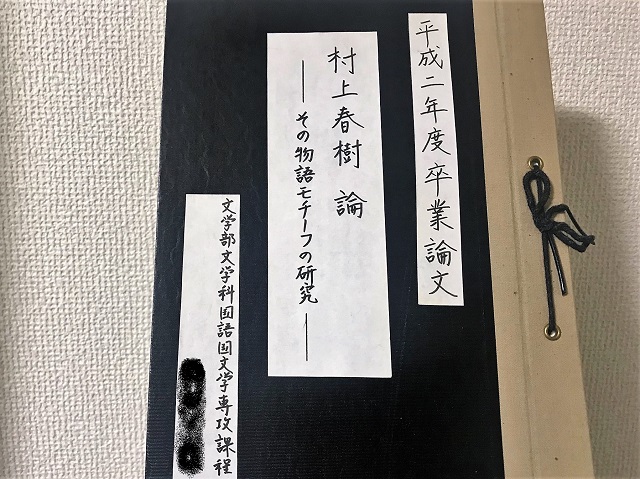 平成二年度卒業論文
村上春樹論
―その物語モチーフの研究―
文学部文学科国語国文学専攻課程